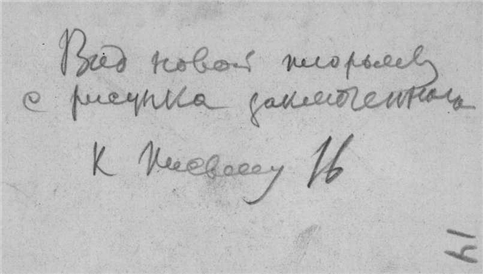 Вид новой тюрьмы
с рисунка заключенного
К Киевлему 16
14